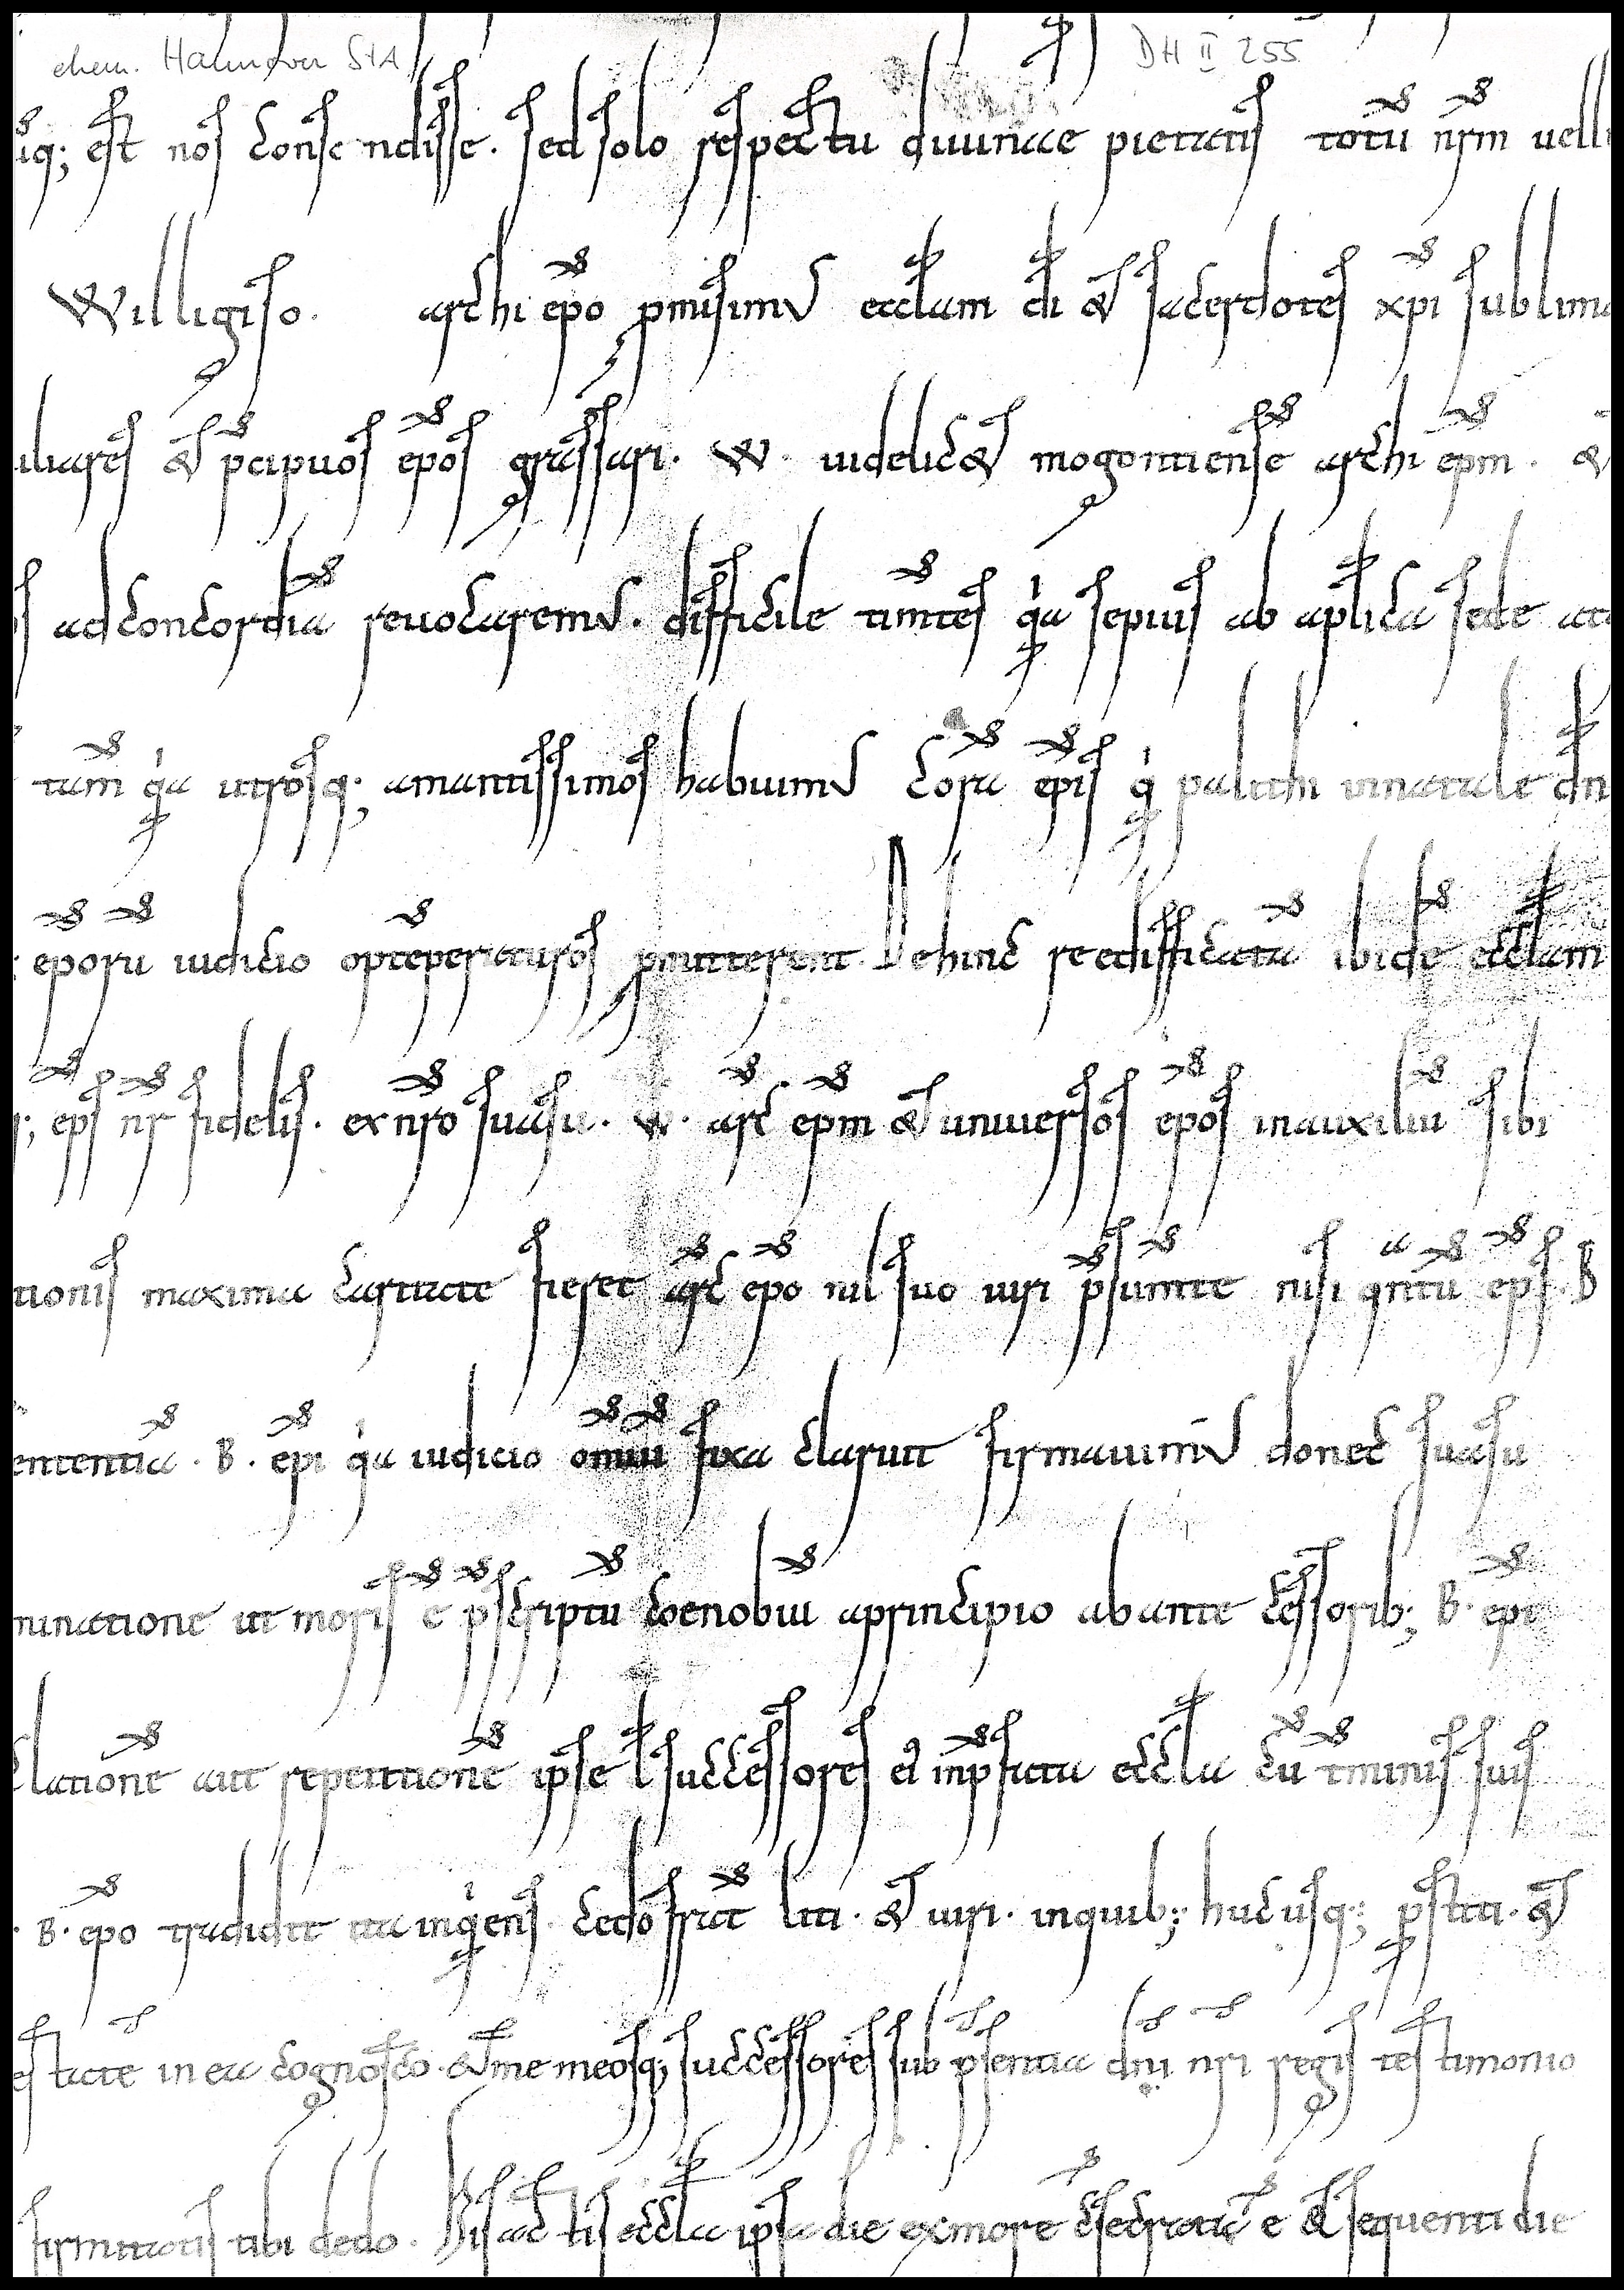 ehem. Hannover StA DH II 255
iq; est nos consc ndisse. sed solo respectu diuinae pietatis totū nr̄m uell
Willigiso. archi ep̄o p̄misimus eccl̄am d̄i & sacerdotes xp̄i sublima
iliares & p̄cipuos ep̄os grassari. W. uidelic& mogontiense archi ep̄m. &
ad concordiā reuocaremus. difficile tim̄tes qͥa sepius ab ap̄lica sede
tam̄ qͥa utrosq; amantissimos habuimus corā ep̄is qͥ palithi innatale dn̄
ep̄orū iudicio optēperaturos p̄mitterent. Dehinc reedifficatā ibidē eccl̄am
; ep̄s nr̄ fidelis. ex nr̄o suasu. W. arc̄ ep̄m & uniuersos ep̄os inauxiliū sibi
tionis maxima caritate fieret arc̄ ep̄o nil suo iuri p̄sum̄te nisi qᵃntū ep̄s. B
ententiā. B. ep̄i qͥa iudicio omīū fixa claruit firmauimus donec suasu
minatione ut moris ē p̄scriptū coenobiū aprincipio ab ante cessorib; B. ep̄i
clatione aut repetitione ipse l̄ successores ei inp̄fata eccl̄a cū t̄minis suis
. B. ep̄o tradidit ita inqͥens. cedo frat̄ liti. & iuri. inquib; hucusq; p̄stiti. &
es tate in ea cognosco. & me meosq; successores sub p̄sentia dn̄i nr̄i regis tes timonio
firmitatis tibi dedo. His ac tis eccl̄a ipsa die ex more c̄secrata ē & sequenti die